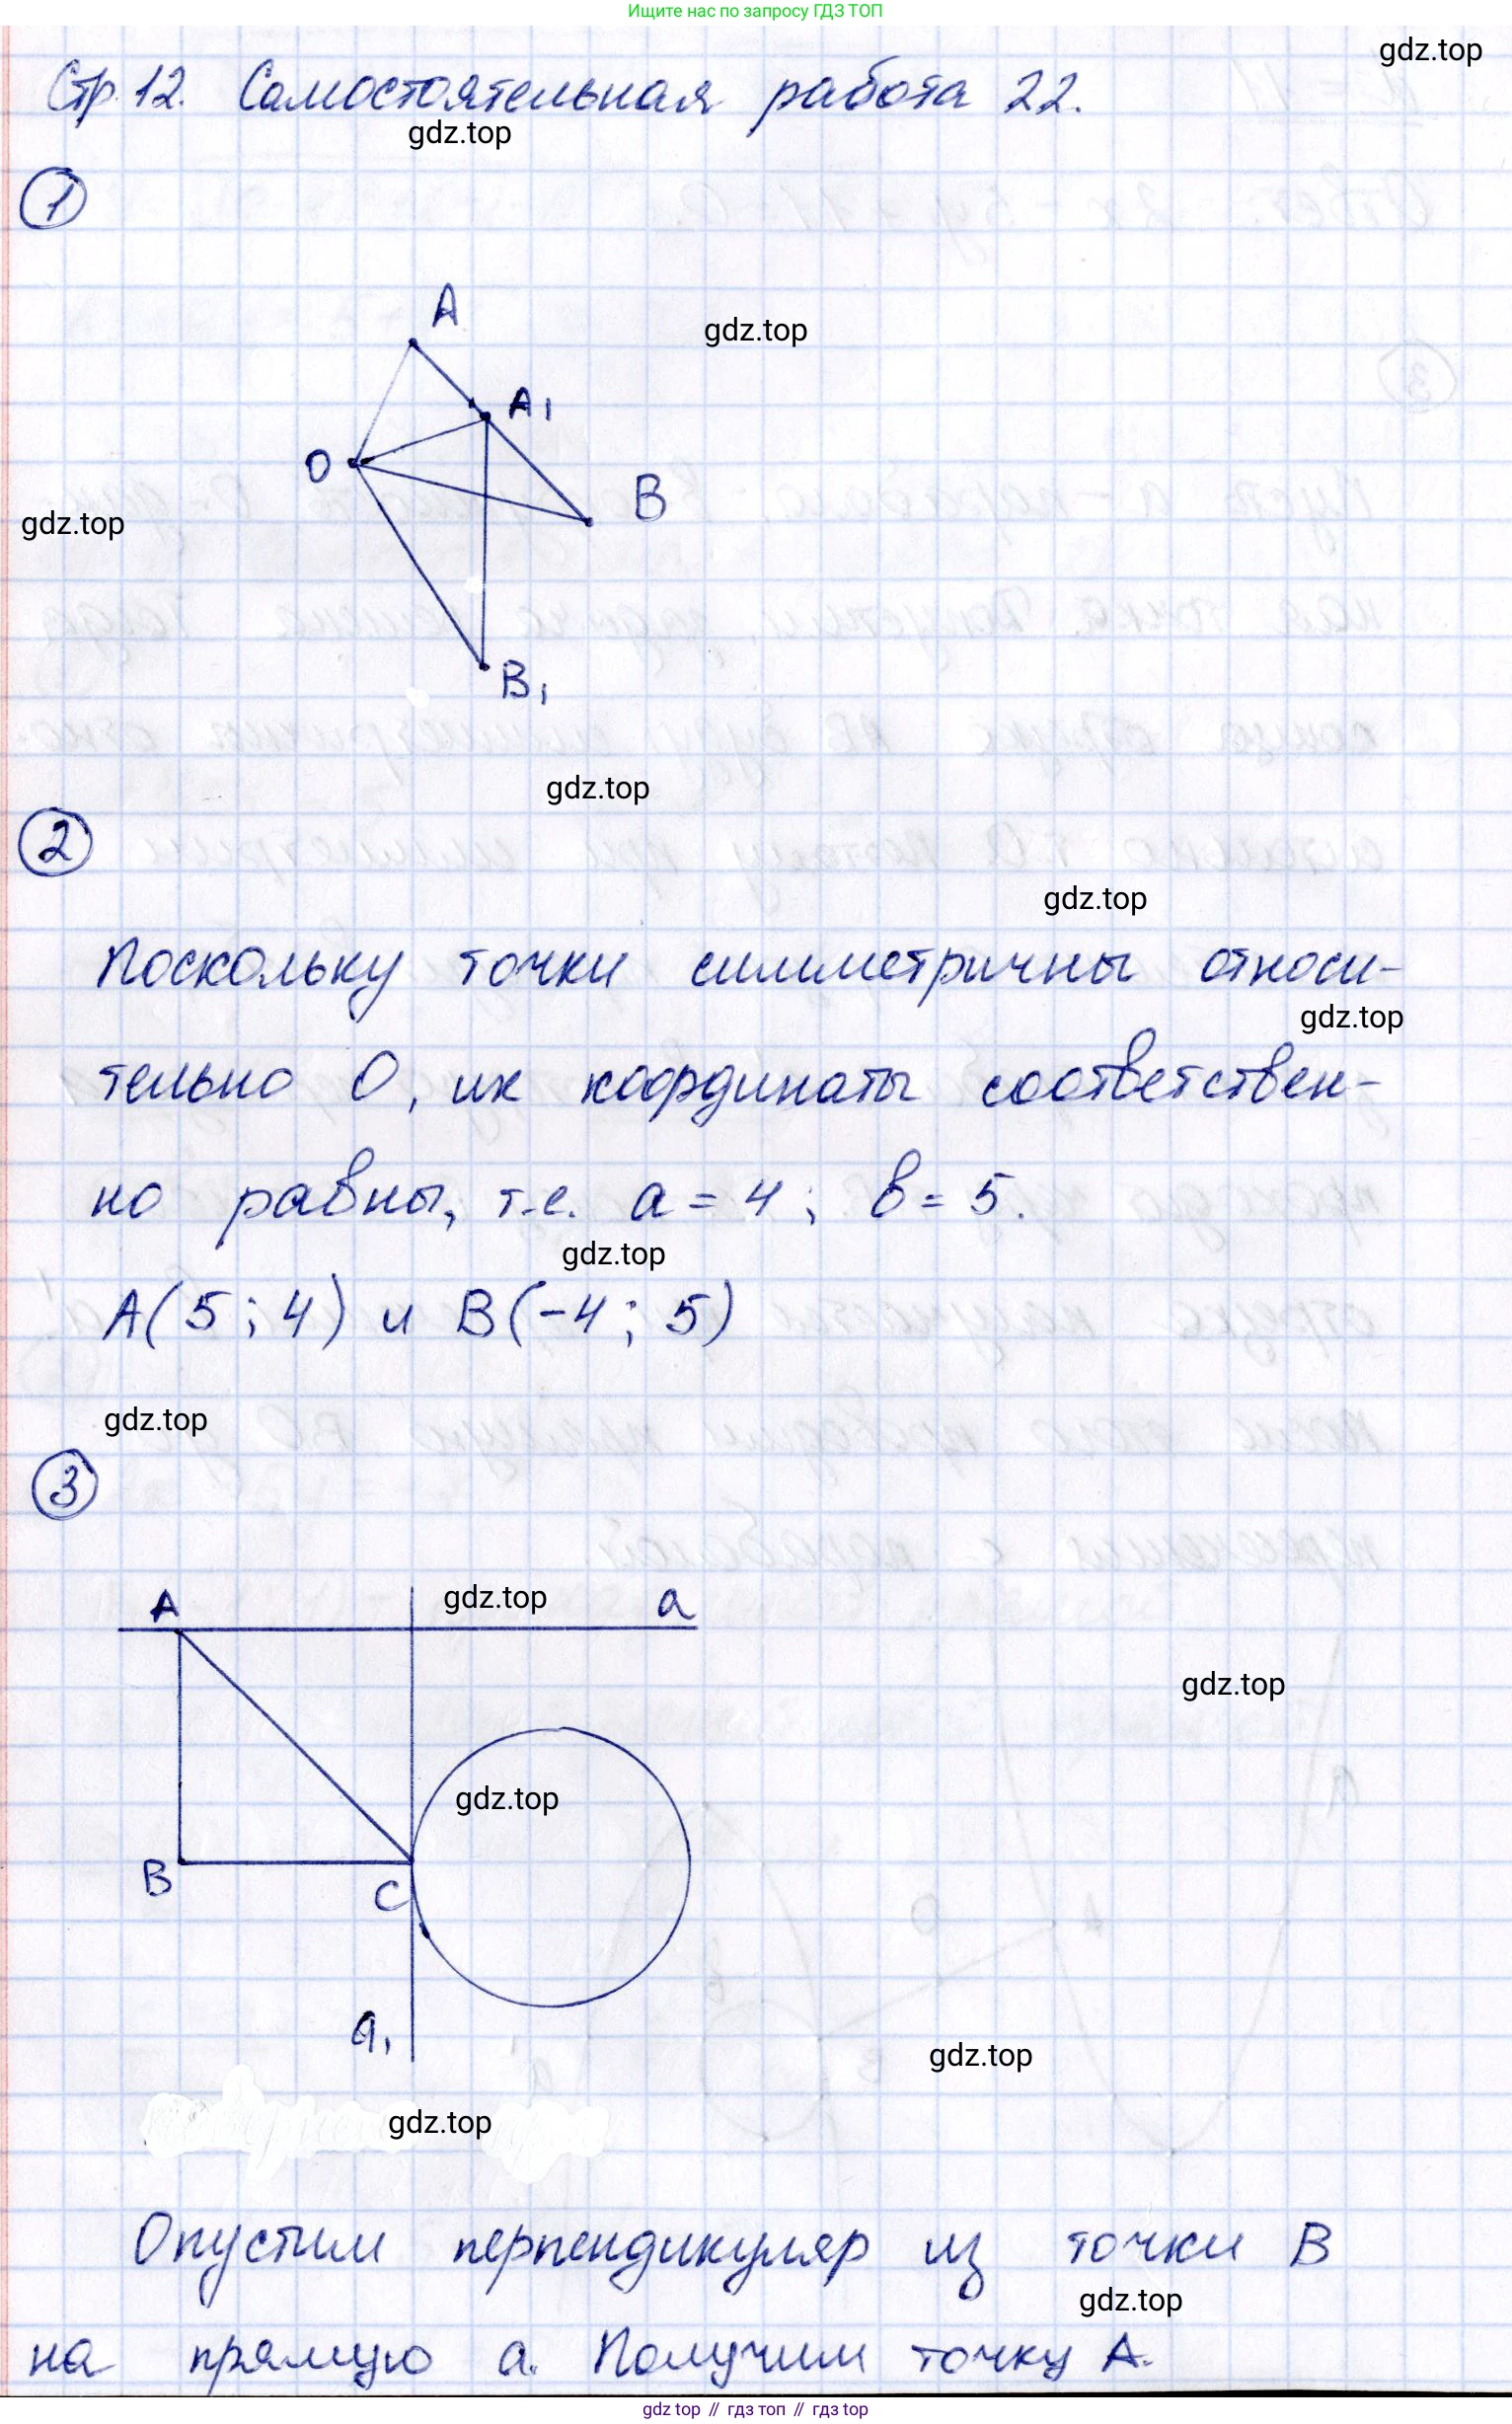 Ищите нас по запросу ГДЗ ТОП
gdz.top
Стр. 12. Самостоятельная работа 22.
gdz.top
1
A
gdz.top
A1
O
B
gdz.top
B1
gdz.top
2
gdz.top
Поскольку точки симметричны относи-
gdz.top
тельно O, их координаты соответствен-
но равны, т.е. a = 4; b = 5.
gdz.top
A(5; 4) и B(-4; 5)
gdz.top
3
A
gdz.top
a
gdz.top
gdz.top
B
C
a1
gdz.top
gdz.top
Опустим перпендикуляр из точки B
gdz.top
на прямую a. Получим точку A.
gdz top // гдз топ // гдз top